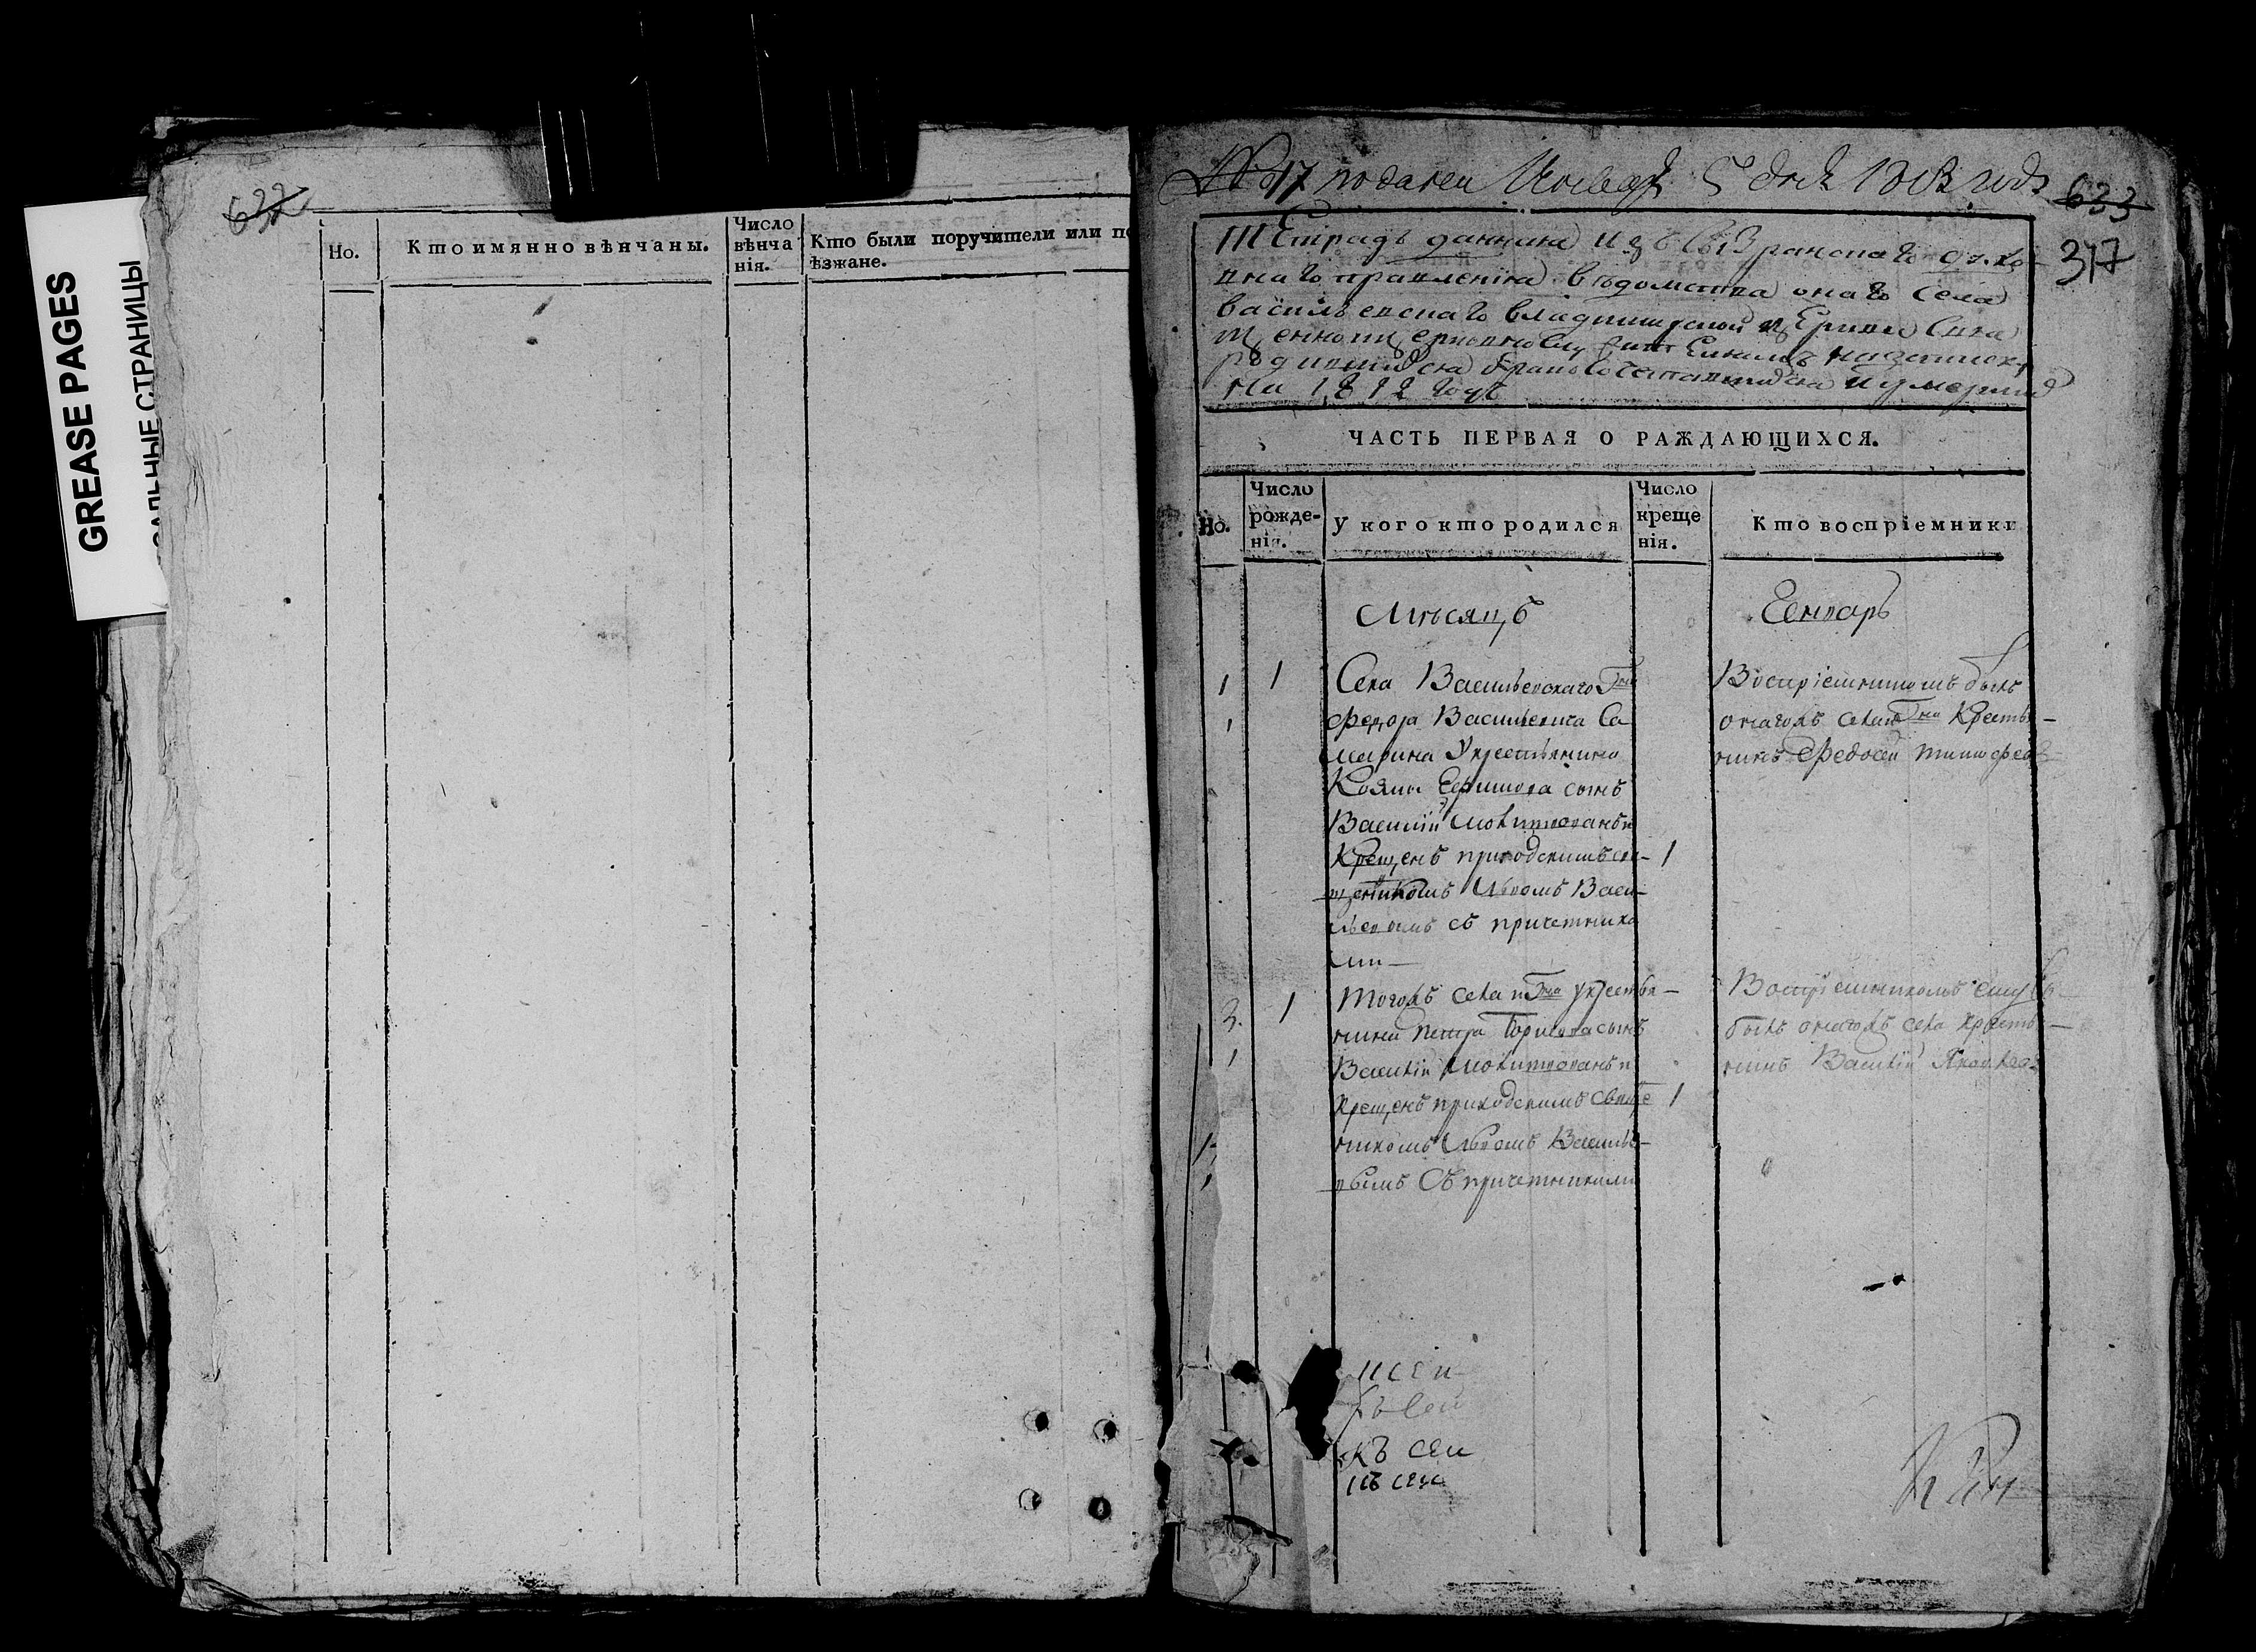 GREASE PAGES
САЛЬНЫЕ СТРАНИЦЫ
632
Но.
Кто имянно вѣнчаны.
Число
вѣнча
нія.
Кто были поручители или по
ѣзжане.
№ 17 подана 5 дня 1813 года
633
317
Тетрадь данная изъ духо-
внаго правленія вѣдомства онаго села
Васильевскаго Владимирской церкви свя
щенноцерковно на записку
родившихся бракосочетавшихся и умерших
На 1812 годъ
ЧАСТЬ ПЕРВАЯ О РАЖДАЮЩИХСЯ.
Но.
Число
рожде-
нія.
У кого кто родился
Число
креще
нія.
Кто воспріемники
Мѣсяцъ
Генварь
1
1
Села Васильевскаго Гна
Федора Васильевича Са
марина у крестьянина
Козмы сынъ
Василій молитвованъ и
крещенъ приходскимъ свя-
щенникомъ Львомъ Васи-
льевымъ съ причетника
ми
1
Воспріемникомъ былъ
онагожъ села Гна крестья-
нинъ Федосей Тимофеев
1
2.
1
Тогожъ села Гна у крестья-
нина Петра сынъ
Василій молитвованъ и
крещенъ приходскимъ свяще
никомъ Львомъ Василье-
вымъ съ причетниками
1
Воспріемникомъ ему
былъ онагожъ села крестья-
нинъ Василій Яковлев
1
къ сей